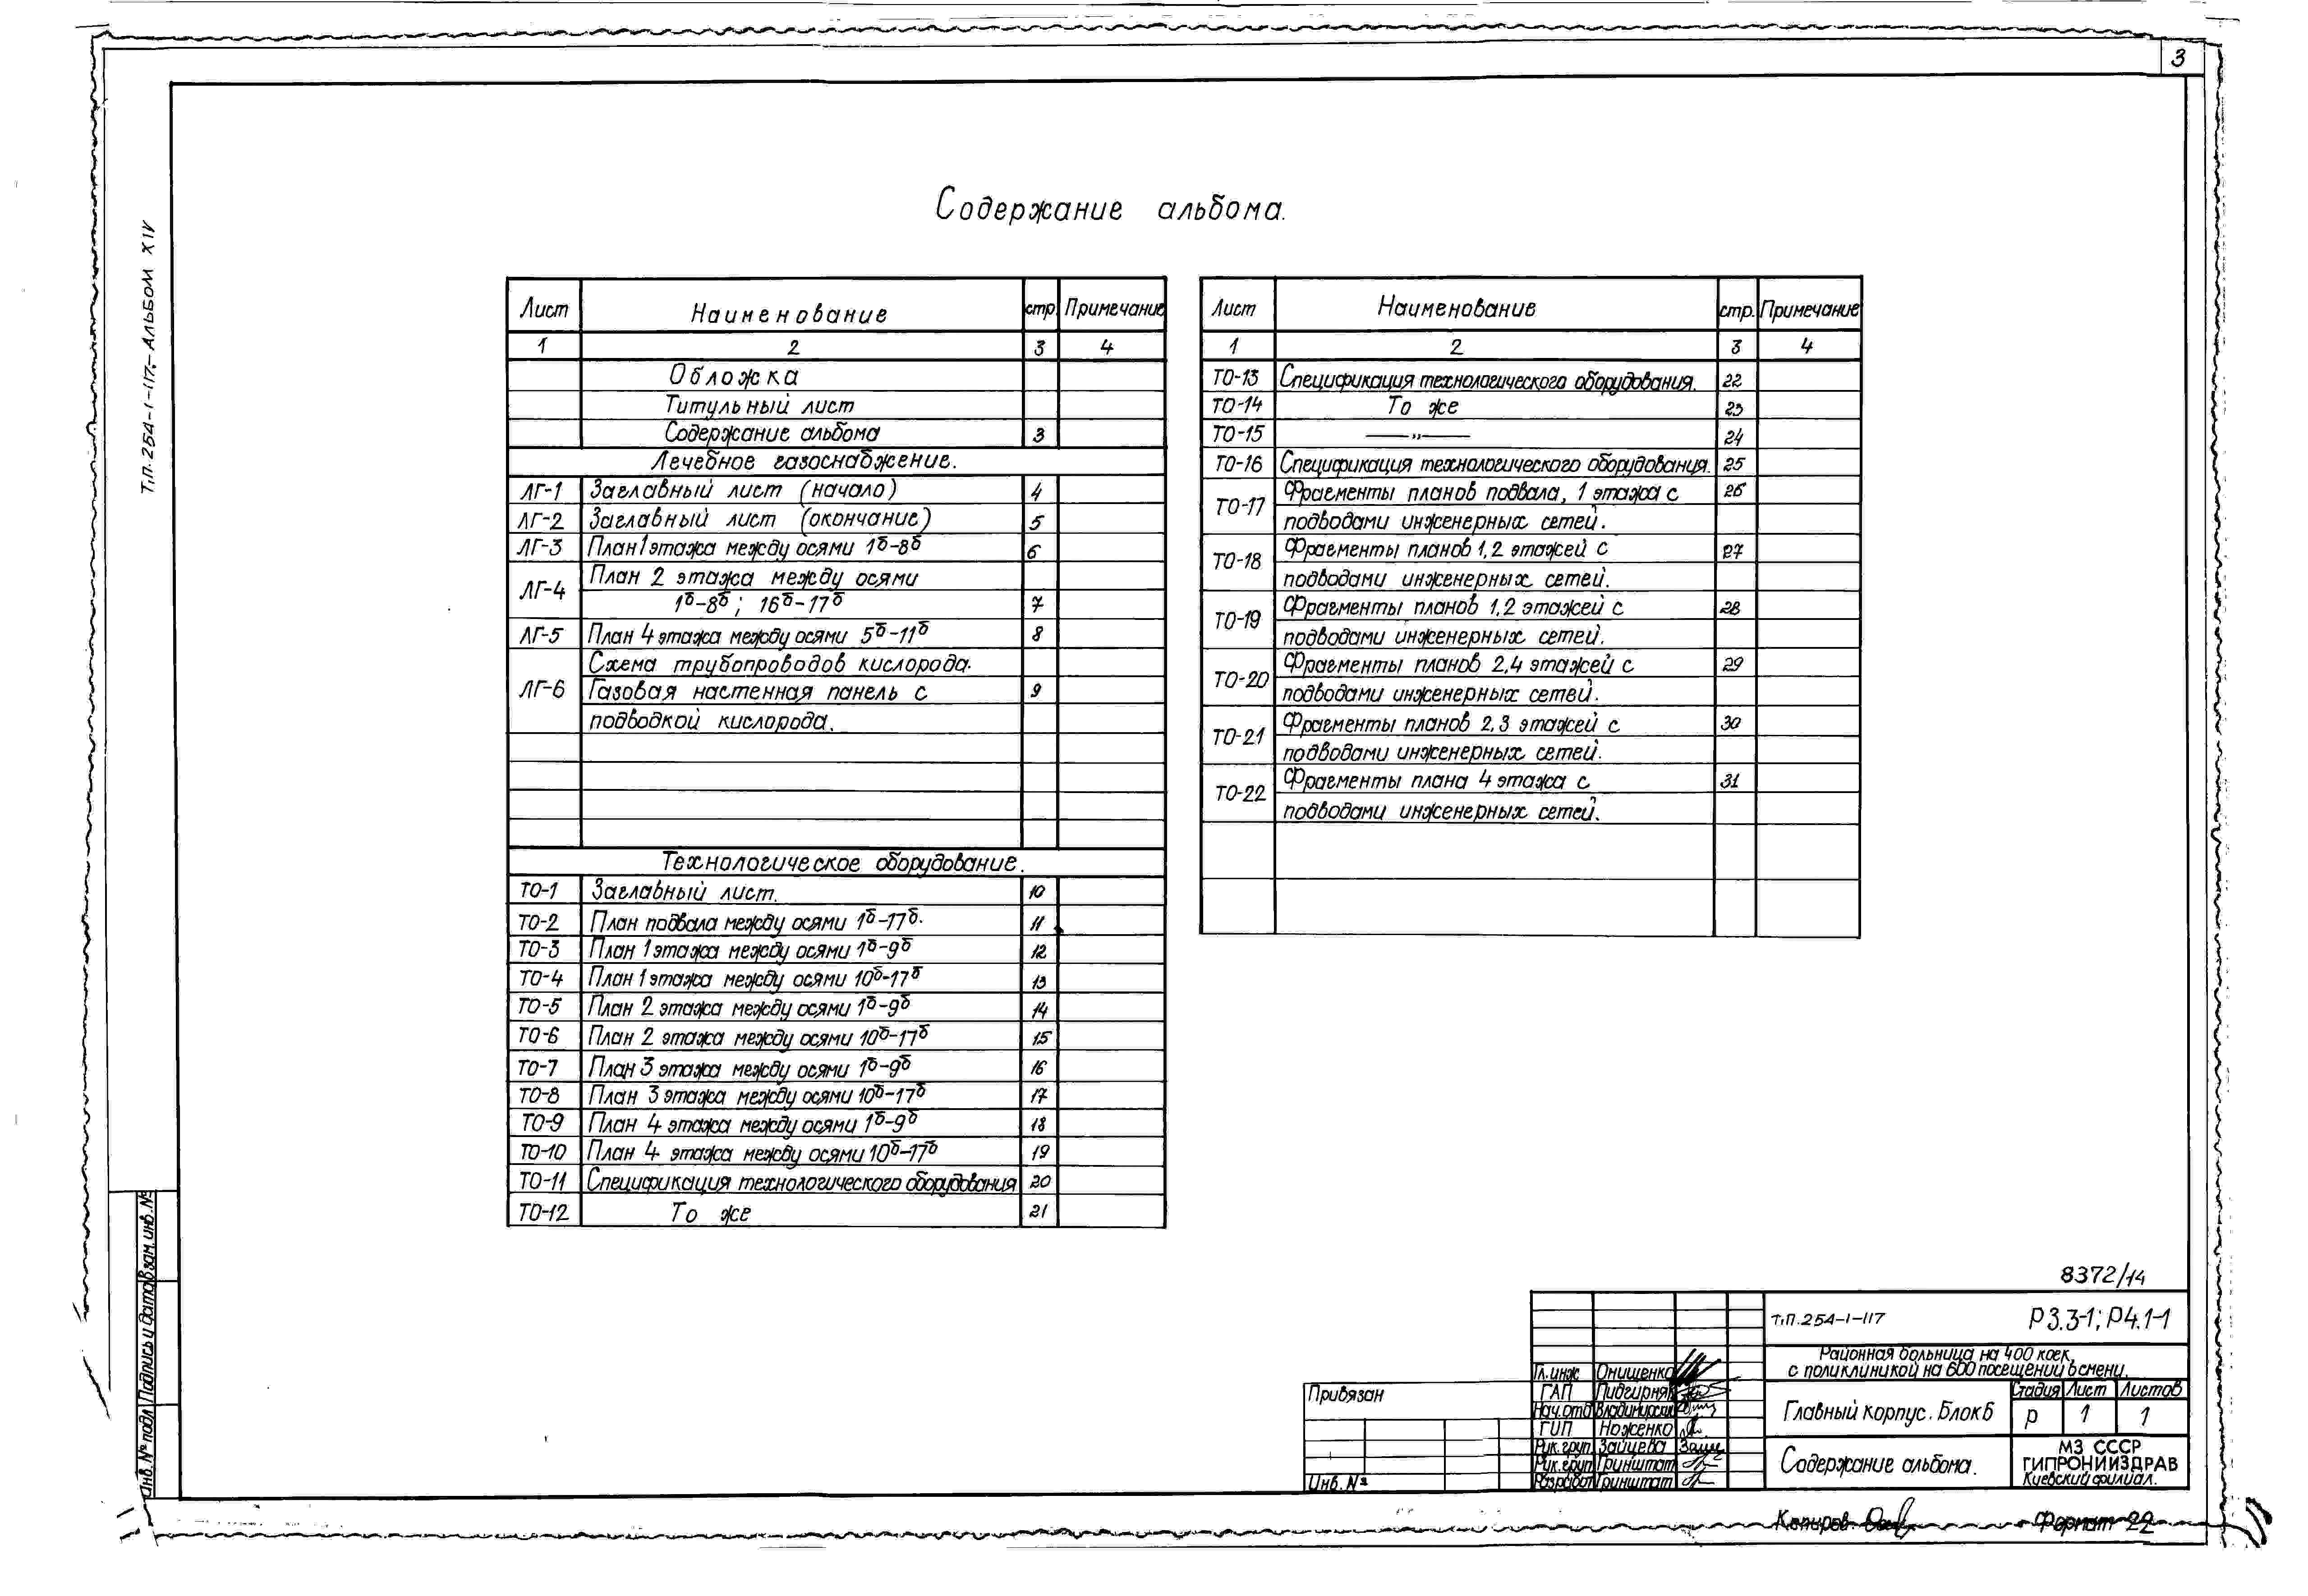 3
Т.П. 254-1-117.-АЛЬБОМ XIV
Содержание альбома.
Лист Наименование стр. Примечание
1 2 3 4
Обложка
Титульный лист
Содержание альбома 3
Лечебное газоснабжение.
ЛГ-1 Заглавный лист (начало) 4
ЛГ-2 Заглавный лист (окончание) 5
ЛГ-3 План 1 этажа между осями 1б-8б 6
ЛГ-4 План 2 этажа между осями
1б-8б; 16б-17б 7
ЛГ-5 План 4 этажа между осями 5б-11б 8
Схема трубопроводов кислорода.
ЛГ-6 Газовая настенная панель с 9
подводкой кислорода.
Технологическое оборудование.
ТО-1 Заглавный лист. 10
ТО-2 План подвала между осями 1б-17б. 11
ТО-3 План 1 этажа между осями 1б-9б 12
ТО-4 План 1 этажа между осями 10б-17б 13
ТО-5 План 2 этажа между осями 1б-9б 14
ТО-6 План 2 этажа между осями 10б-17б 15
ТО-7 План 3 этажа между осями 1б-9б 16
ТО-8 План 3 этажа между осями 10б-17б 17
ТО-9 План 4 этажа между осями 1б-9б 18
ТО-10 План 4 этажа между осями 10б-17б 19
ТО-11 Спецификация технологического оборудования 20
ТО-12 То же 21
Лист Наименование стр. Примечание
1 2 3 4
ТО-13 Спецификация технологического оборудования. 22
ТО-14 То же 23
ТО-15 —„— 24
ТО-16 Спецификация технологического оборудования. 25
ТО-17 Фрагменты планов подвала, 1 этажа с 26
подводами инженерных сетей.
ТО-18 Фрагменты планов 1,2 этажей с 27
подводами инженерных сетей.
ТО-19 Фрагменты планов 1,2 этажей с 28
подводами инженерных сетей.
ТО-20 Фрагменты планов 2,4 этажей с 29
подводами инженерных сетей.
ТО-21 Фрагменты планов 2,3 этажей с 30
подводами инженерных сетей.
ТО-22 Фрагменты плана 4 этажа с 31
подводами инженерных сетей.
Инв. № подл Подпись и дата Взам. инв. №
8372/14
Т.П. 254-1-117 Р3.3-1; Р4.1-1
Районная больница на 400 коек,
с поликлиникой на 600 посещений в смену.
Гл. инж Онищенко
ГАП Пидгирняк
Нач. отд
ГИП Ноженко
Рук. груп. Зайцева
Рук. груп Гринштат
Разработ Гринштат
Привязан
Инв. №
Главный корпус. Блок Б
Стадия Лист Листов
Р 1 1
Содержание альбома.
МЗ СССР
ГИПРОНИИЗДРАВ
Киевский филиал.
Копиров.
Формат 22